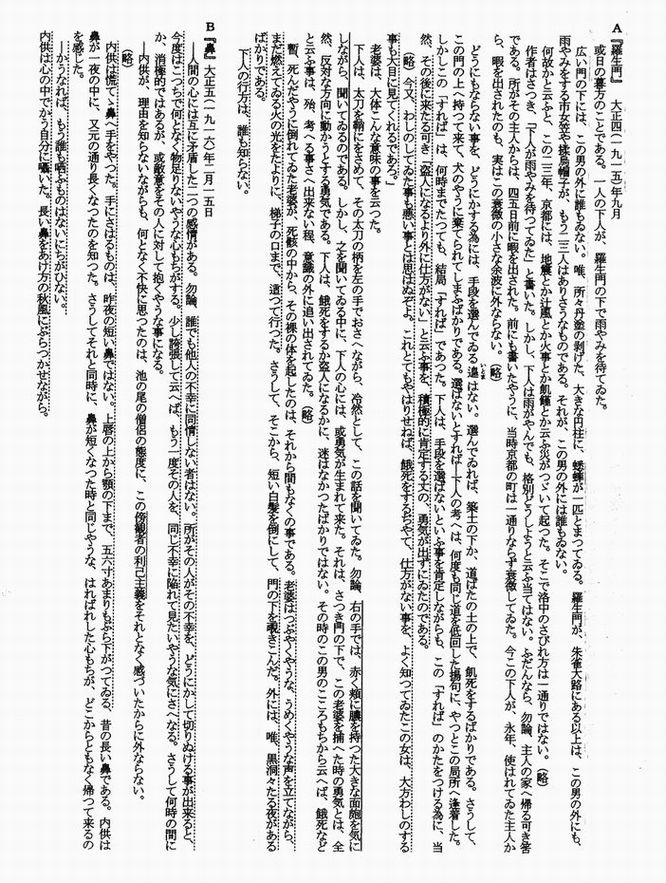 A『羅生門』 大正四(一九一五)年九月
或日の暮方のことである。一人の下人が、羅生門の下で雨やみを待てゐた。
広い門の下には、この男の外に誰もゐない。唯、所々丹塗の剥げた、大きな円柱に、蟋蟀が一匹とまつてゐる。羅生門が、朱雀大路にある以上は、この男の外にも、
雨やみをする市女笠や揉烏帽子が、もう二三人はありさうなものである。それが、この男の外には誰もゐない。
何故かと云ふと、この二三年、京都には、地震とか辻風とか火事とか飢饉とか云ふ災がつゞいて起つた。そこで洛中のさびれ方は一通りではない。(略)
作者はさつき、「下人が雨やみを待つてゐた」と書いた。しかし、下人は雨がやんでも、格別どうしようと云ふ当てはない。ふだんなら、勿論、主人の家へ帰る可き筈
である。所がその主人からは、四五日前に暇を出された。前にも書いたやうに、当時京都の町は一通りならず衰微してゐた。今この下人が、永年、使はれてゐた主人か
ら、暇を出されたのも、実はこの衰微の小さな余波に外ならない。(略)
どうにもならない事を、どうにかする為には、手段を選んでゐる遑はない。選んでゐれば、築土の下か、道ばたの土の上で、飢死をするばかりである。さうして、
この門の上へ持つて来て、犬のやうに棄てられてしまふばかりである。選ばないとすれば―下人の考へは、何度も同じ道を低回した揚句に、やつとこの局所へ逢着した。
しかしこの「すれば」は、何時までたつても、結局「すれば」であつた。下人は、手段を選ばないといふ事を肯定しながらも、この「すれば」のかたをつける為に、当
然、その後に来たる可き「盗人になるより外に仕方がない」と云ふ事を、積極的に肯定する丈の、勇気が出ずにゐたのである。
(略)今又、わしのしてゐた事も悪い事とは思はぬぞよ。これとてもやはりせねば、餓死をするぢやて、仕方がない事を、よく知つてゐたこの女は、大方わしのする
事も大目に見てくれるであろ。」
老婆は、大体こんな意味の事を云つた。
下人は、太刀を鞘にをさめて、その太刀の柄を左の手でおさへながら、冷然として、この話を聞いてゐた。勿論、右の手では、赤く頬に膿を持つた大きな面皰を気に
しながら、聞いてゐるのである。しかし、之を聞いてゐる中に、下人の心には、或勇気が生まれて来た。それは、さつき門の下で、この老婆を捕へた時の勇気とは、全
然、反対な方向に動かうとする勇気である。下人は、餓死をするか盗人になるかに、迷はなかつたばかりではない。その時のこの男のこころもちから云へば、餓死など
と云ふ事は、殆、考へる事さへ出来ない程、意識の外に追い出されてゐた。(略)
暫、死んだやうに倒れてゐた老婆が、死骸の中から、その裸の体を起したのは、それから間もなくの事である。老婆はつぶやくやうな、うめくやうな声を立てながら、
まだ燃えてゐる火の光をたよりに、梯子の口まで、這つて行つた。さうして、そこから、短い白髪を倒にして、門の下を覗きこんだ。外には、唯、黒洞々たる夜がある
ばかりである。
下人の行方は、誰も知らない。
B『鼻』大正五(一九一六)年二月一五日
―人間の心には互に矛盾した二つの感情がある。勿論、誰でも他人の不幸に同情しない者はない。所がその人がその不幸を、どうにかして切りぬける事が出来ると、
今度はこつちで何となく物足りないやうな心もちがする。少し誇張して云へば、もう一度その人を、同じ不幸に陥れて見たいやうな気にさへなる。さうして何時の間に
か、消極的ではあるが、或敵意をその人に対して抱くやうな事になる。
―内供が、理由を知らないながらも、何となく不快に思つたのは、池の尾の僧俗の態度に、この傍観者の利己主義をそれとなく感づいたからに外ならない。
内供は慌てゝ鼻へ手をやつた。手にさはるものは、昨夜の短い鼻ではない。上唇の上から顎の下まで、五六寸あまりもぶら下がつてゐる、昔の長い鼻である。内供は
鼻が一夜の中に、又元の通り長くなつたのを知つた。さうしてそれと同時に、鼻が短くなつた時と同じやうな、はればれした心もちが、どこからともなく帰つて来るの
を感じた。
―かうなれば、もう誰も哂ふものはないにちがひない。
内供は心の中でかう自分に囁いた。長い鼻をあけ方の秋風にぶらつかせながら。